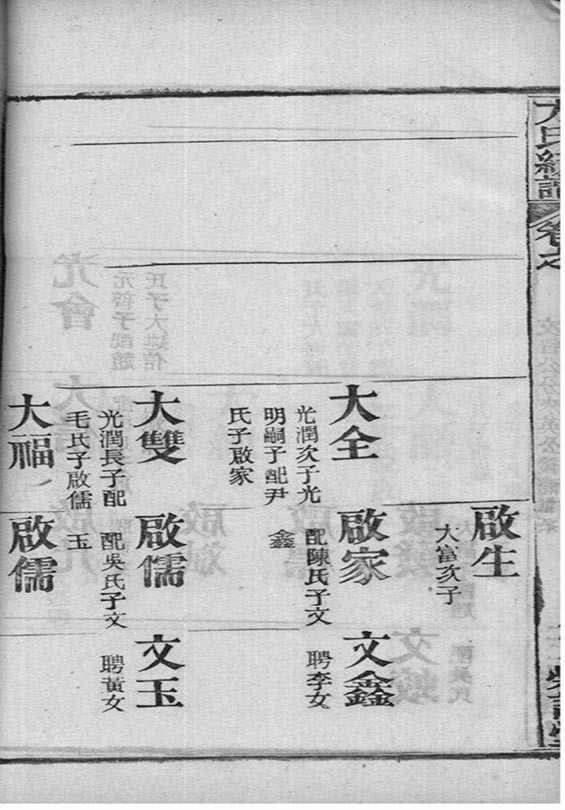 卷之
大全
光潤次子光
明嗣子配尹
氏子啟家
大雙
光潤長子配
毛氏子啟儒
大福
啟生
大富次子
啟家
配陳氏子文
鑫
啟儒
配吳氏子文
玉
啟儒
文鑫
聘李女
文玉
聘黃女